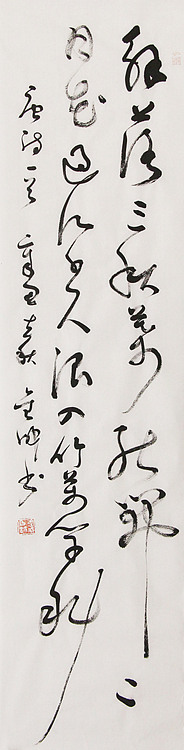 解落三秋葉能開二
月花過江千尺浪入竹萬竿斜
唐詩一首 書